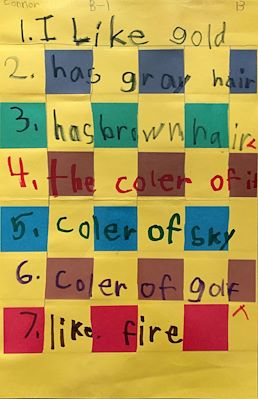 connor B-1 B
1. I Like gold
2. has gray hair
3. has brown hair
4. the coler of it
5. coler of sky
6. coler of golf
7. like fire